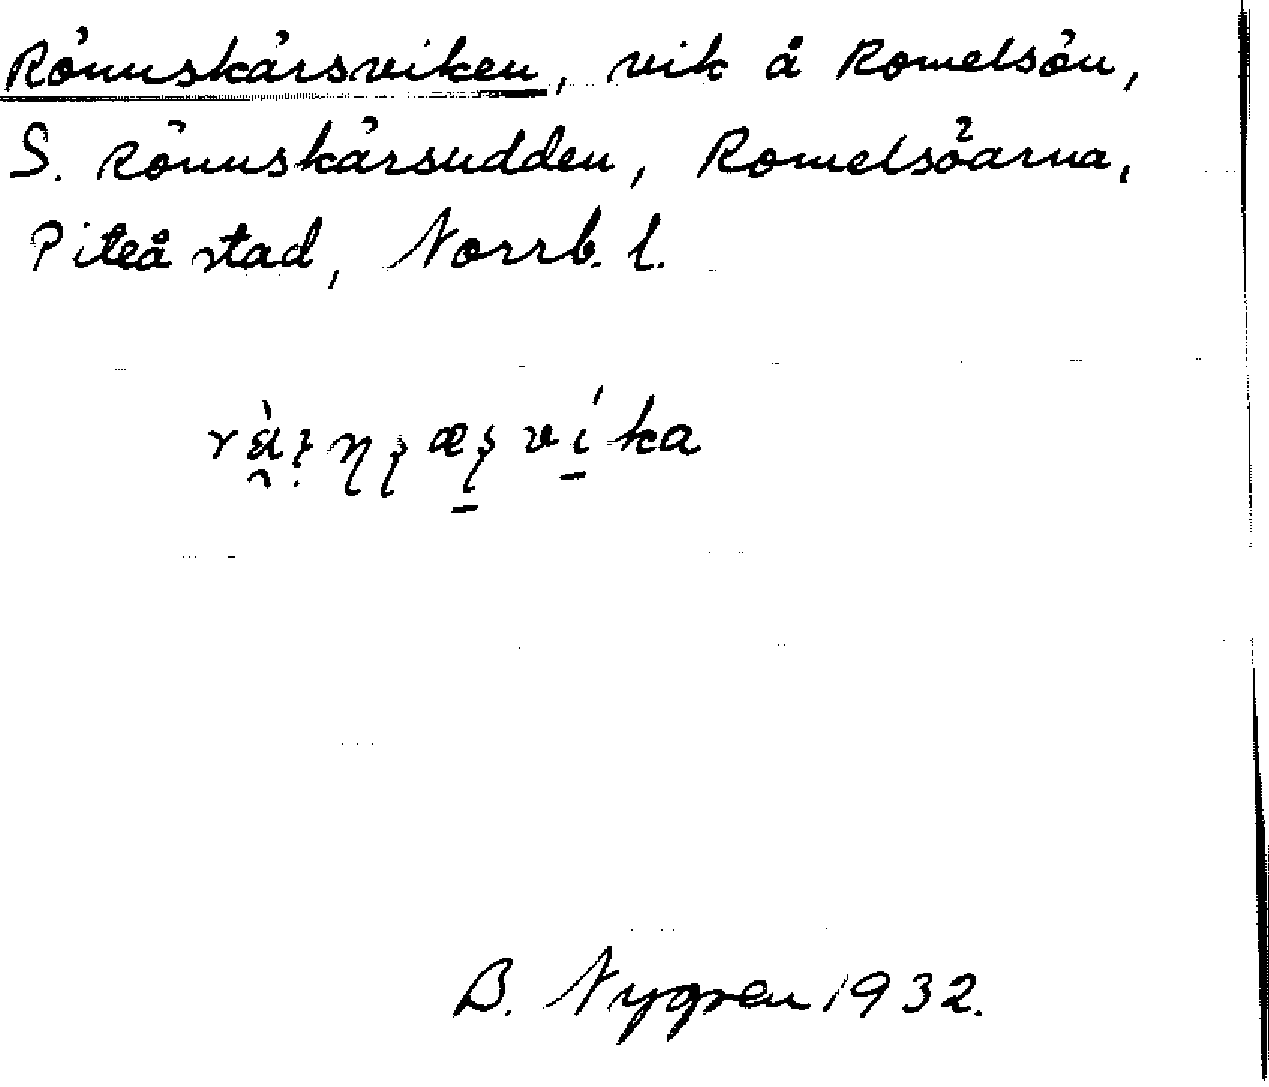 Rönnskärsviken, vik å Romelsön,
S. Rönnskärsudden, Romelsöarna,
Piteå stad, Norrb. l.
B. Nygren 1932.